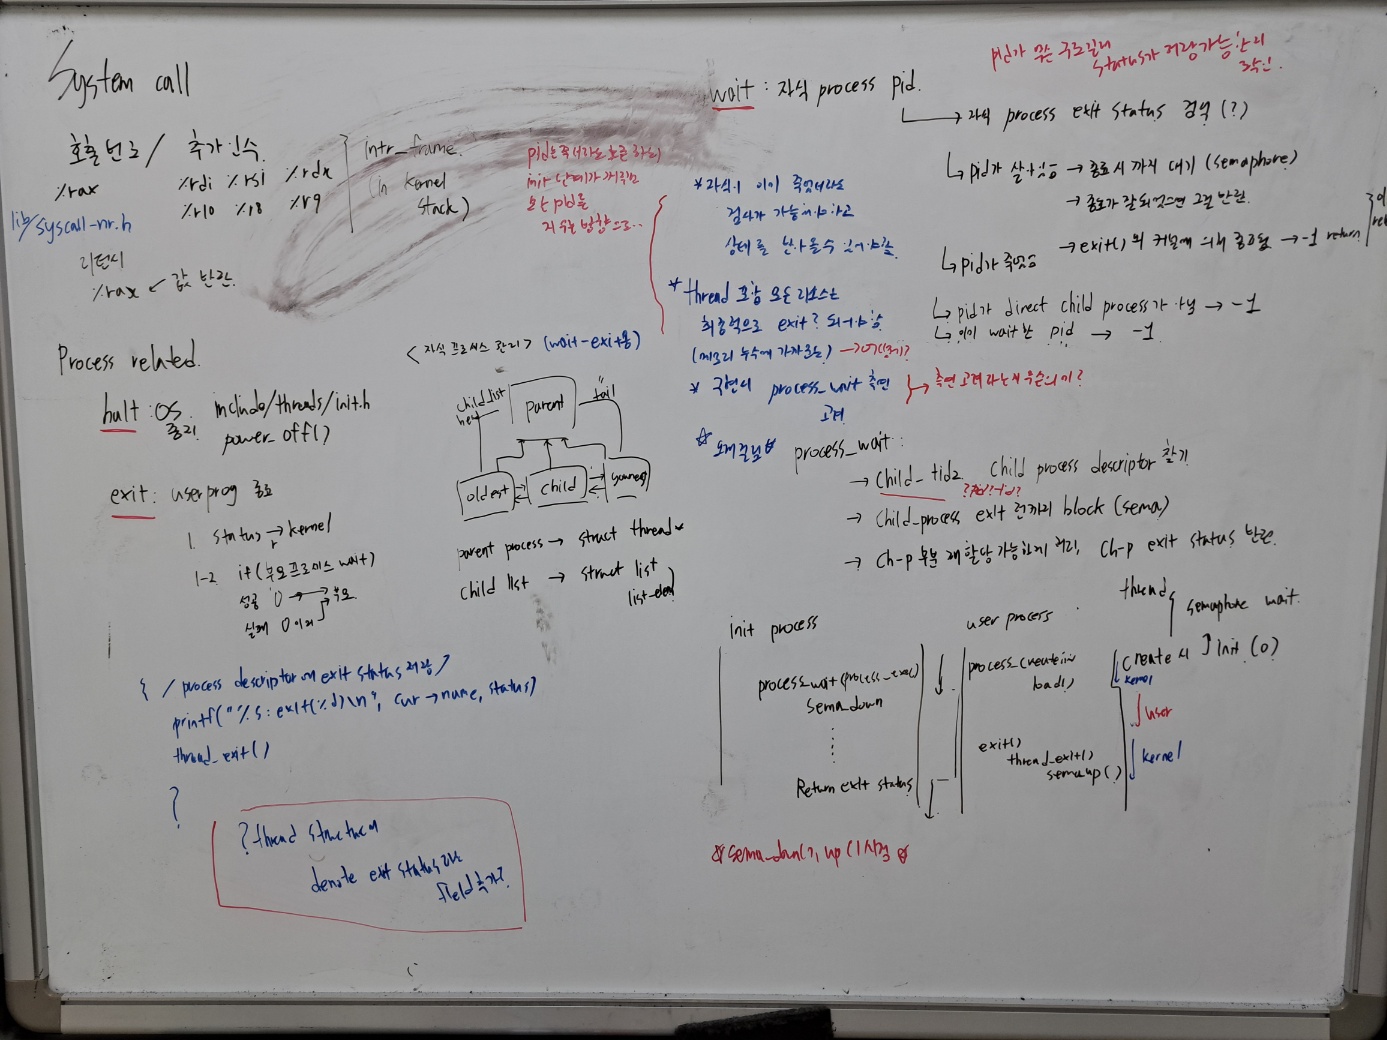 System call
호출 번호 / 추가 인수
%rax %rdi %rsi %rdx
%r10 %r8 %r9
intr_frame
(in kernel
stack)
lib/syscall-nr.h
리턴시
%rax ← 값 반환
pid는 죽더라도
모든 pid를
지우는 방향으로..
Process related.
halt : OS 종료
include/threads/init.h
power_off()
exit : userprog 종료
1. status → kernel
1-2. if (부모프로세스 wait)
성공 0 → 부모
실패 0 이외
{ / process descriptor에 exit status 저장 /
printf("%s: exit(%d)\n", cur→name, status)
thread_exit()
?
? thread structure에
denote exit status라는
field 추가?
< 자식 프로세스 관리 > (wait-exit용)
child list
parent
tail
oldest
child
parent process → struct thread*
child list → struct list
list-elem
wait : 자식 process pid.
→ 자식 process exit status 검색 (?)
↳ pid가 살아있음 → 종료시 까지 대기 (semaphore)
→ 종료가 잘 되었으면 그걸 반환.
↳ pid가 죽었음 → exit() 외 커널에 의해 종료됨 → -1 return
↳ pid가 direct child process가 아님 → -1
↳ 이미 wait한 pid → -1
pid가
status가 저장가능한지
확인.
* 자식이 이미 죽었더라도
검사가 가능해야하고
상태를 받아올 수 있어야함
* thread 포함 모든 리소스는
최종적으로 exit? 되어야함
(메모리 누수에 가까운듯)
* 구현시 process_wait 측면
고려
→ 측면 고려라는게 무슨의미?
process_wait :
→ Child_tid로 Child process descriptor 찾기
→ child-process exit 전까지 block (sema)
→ ch-p 부분 재할당 가능하게 처리, ch-p exit status 반환.
init process
process_wait(process_exec)
sema_down
Return exit status
user process
process_create_in
load()
exit()
thread_exit()
sema_up()
thread
semaphore wait.
create 시 Init (0)
kernel
user
kernel
☆ sema_down(), up() 시점 ☆